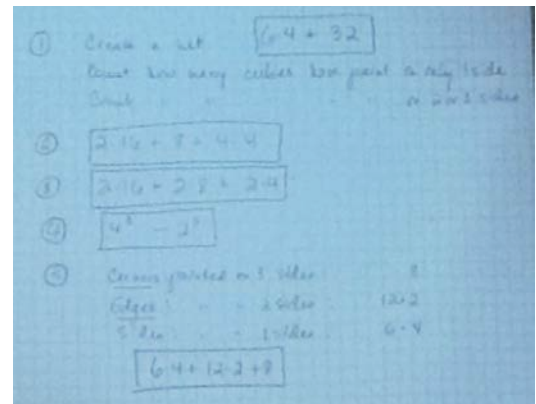 ① Create a net 6·4 + 32
Count how many cubies have paint on only 1 side
Count " " " " " on 2 or 3 sides
② 2·16 + 8 + 4·4
③ 2·16 + 2·8 + 2·4
④ 4³ − 2³
⑤ Corners painted on 3 sides : 8
Edges : " " 2 sides : 12·2
Sides : " " 1 sides : 6·4
6·4 + 12·2 + 8